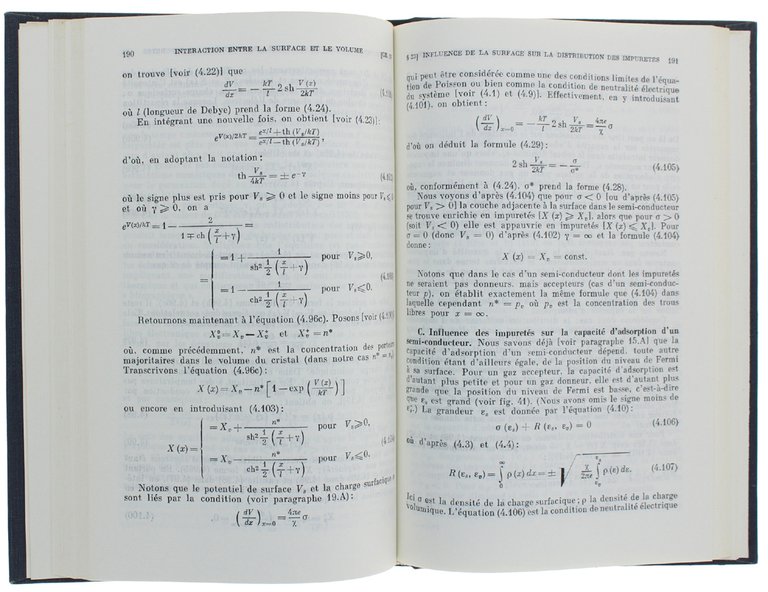 190 INTERACTION ENTRE LA SURFACE ET LE VOLUME
on trouve [voir (4.22)] que
dV/dx = − kT/l 2 sh V (x)/2kT
où l (longueur de Debye) prend la forme (4.24).
En intégrant une nouvelle fois, on obtient [voir (4.23)]:
e^V(x)/2kT = (e^x/l + th (Vs/kT))/(e^x/l − th (Vs/kT)),
d'où, en adoptant la notation:
th Vs/4kT = ± e^−γ
où le signe plus est pris pour Vs ⩾ 0 et le signe moins pour Vs ⩽
et où γ ⩾ 0, on a
e^V(x)/kT = 1 − 2/(1 ∓ ch (x/l + γ)) =
= { = 1 + 1/(sh² 1/2 (x/l + γ)) pour Vs ⩾ 0,
= 1 − 1/(ch² 1/2 (x/l + γ)) pour Vs ⩽ 0.
Retournons maintenant à l'équation (4.96c). Posons [voir
X*v = Xv − X*v et X*v = n*
où, comme précédemment, n* est la concentration des
majoritaires dans le volume du cristal (dans notre cas n* =
Transcrivons l'équation (4.96c):
X (x) = Xv − n* [1 − exp (V (x)/kT)]
ou encore en introduisant (4.103):
X (x) = { = Xv + n*/(sh² 1/2 (x/l + γ)) pour Vs ⩾ 0,
= Xv − n*/(ch² 1/2 (x/l + γ)) pour Vs ⩽ 0.
Notons que le potentiel de surface Vs et la charge surfacique
sont liés par la condition (voir paragraphe 19.A):
(dV/dx)x=0 = 4πe/χ σ
§ 23] INFLUENCE DE LA SURFACE SUR LA DISTRIBUTION DES IMPURETÉS 191
qui peut être considérée comme une des conditions limites de l'équa-
tion de Poisson ou bien comme la condition de neutralité électrique
du système [voir (4.1) et (4.9)]. Effectivement, en y introduisant
(4.101), on obtient:
(dV/dx)x=0 = − kT/l 2 sh Vs/2kT = 4πe/χ σ
d'où on déduit la formule (4.29):
2 sh Vs/2kT = − σ/σ* (4.105)
où, conformément à (4.24), σ* prend la forme (4.28).
Nous voyons d'après (4.104) que pour σ < 0 [ou d'après (4.105)
pour Vs > 0] la couche adjacente à la surface dans le semi-conducteur
se trouve enrichie en impuretés [X (x) ⩾ Xv], alors que pour σ > 0
[soit Vs < 0) elle est appauvrie en impuretés [X (x) ⩽ Xv]. Pour
σ = 0 (donc Vs = 0) d'après (4.102) γ = ∞ et la formule (4.104)
donne:
X (x) = Xv = const.
Notons que dans le cas d'un semi-conducteur dont les impuretés
ne seraient pas donneurs, mais accepteurs (cas d'un semi-conduc-
teur p), on établit exactement la même formule que (4.104) dans
laquelle cependant n* = pv où pv est la concentration des trous
libres pour x = ∞.
C. Influence des impuretés sur la capacité d'adsorption d'un
semi-conducteur. Nous savons déjà [voir paragraphe 15.A] que la
capacité d'adsorption d'un semi-conducteur dépend, toute autre
condition étant d'ailleurs égale, de la position du niveau de Fermi
à sa surface. Pour un gaz accepteur, la capacité d'adsorption est
d'autant plus petite et pour un gaz donneur, elle est d'autant plus
grande que la position du niveau de Fermi est basse, c'est-à-dire
que εs est grand (voir fig. 41). (Nous avons omis le signe moins de
La grandeur εs est donnée par l'équation (4.10):
σ (εs) + R (εs, εv) = 0 (4.106)
où d'après (4.3) et (4.4):
R (εs, εv) = ∫₀^∞ ρ (x) dx = ± √(χ/2πe ∫ ρ (ε) dε. (4.107)
Ici σ est la densité de la charge surfacique; ρ la densité de la charge
volumique. L'équation (4.106) est la condition de neutralité électrique